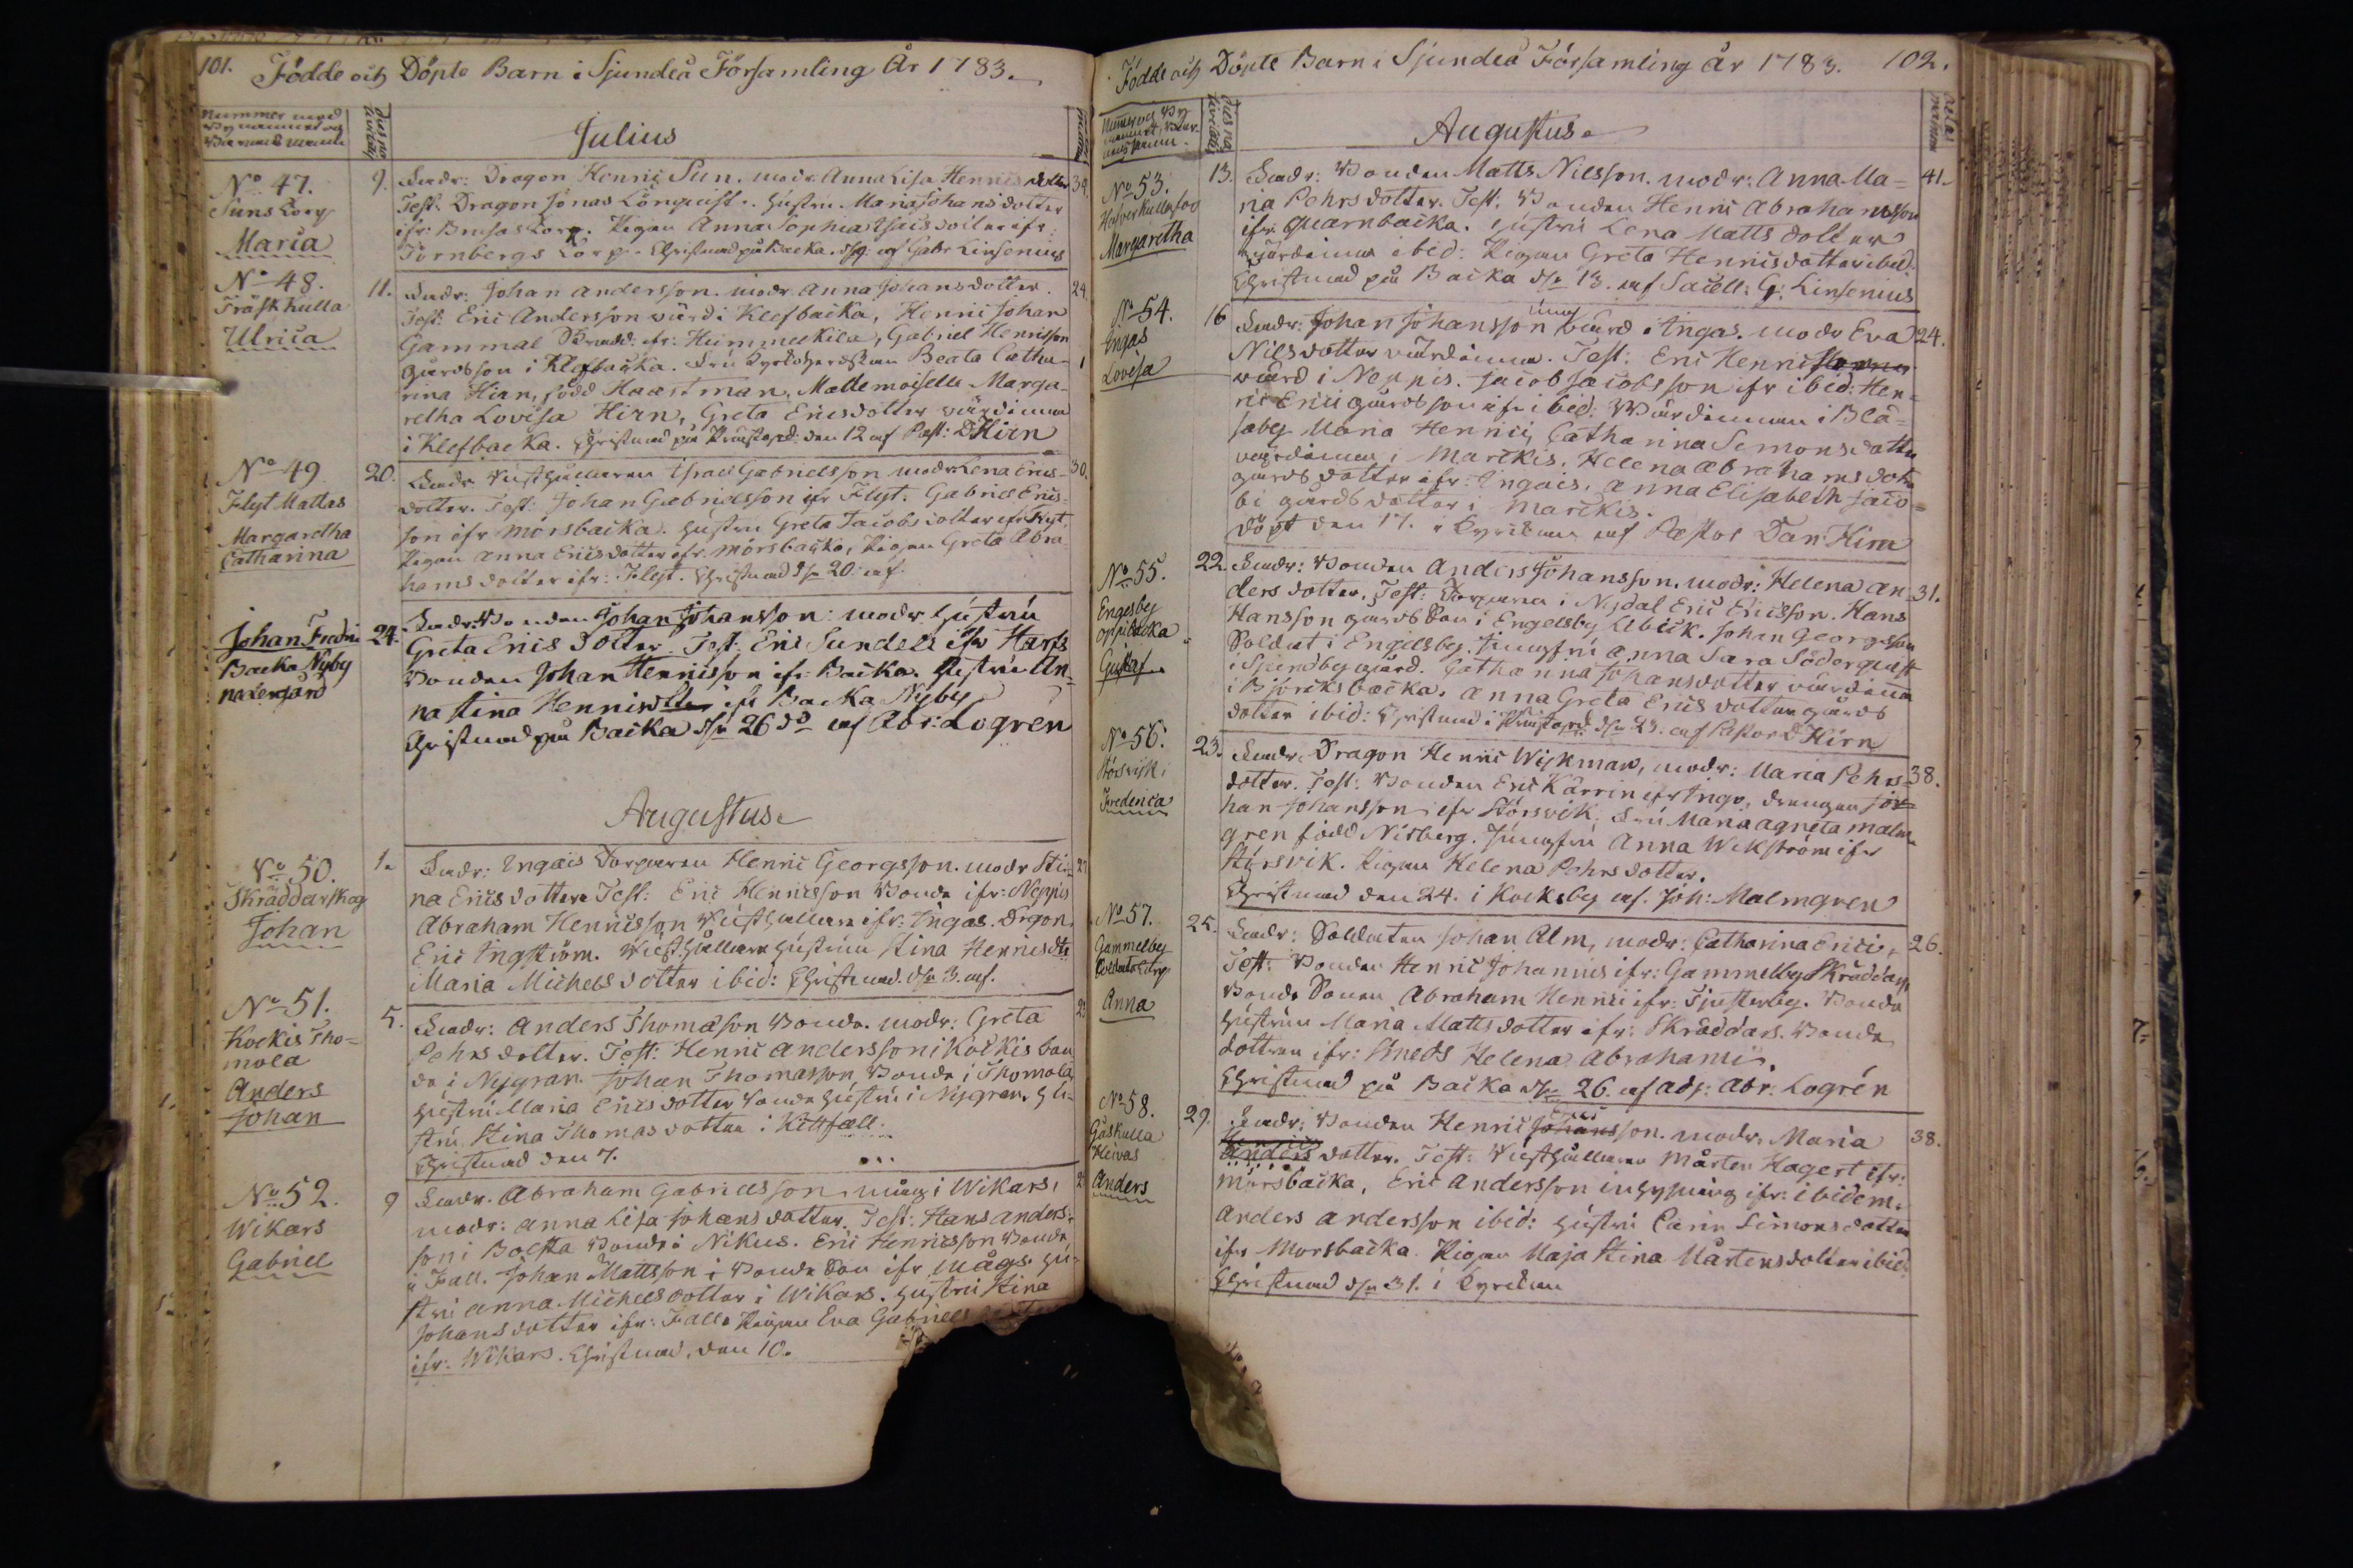 101. Födde och Döpte Barn i Sjundeå Församling År 1783.
Nummer med
Bynamnet og
Barnets namn
Julius
No 47.
Suns torp
Maria
9. Fadr: Dragon Henric Sun. modr Anna Lisa Henricsdotter 39.
Test: Dragon Jonas Lönquist. hustru Maria Johansdotter
ifr: Brusas torp. Pigan Anna Sophia Isacsdotter ifr:
Törnbergs torp. Christnad på Backa. af Gabr Linsenius
No 48.
Träskkulla
Ulrica
11. Fadr: Johan Andersson. modr Anna Johansdotter. 24.
Test: Eric Andersson värd i Klefbacka, Henric Johan
Gammal ifr: Hummelkila, Gabriel Henricsson
gårdsson i Klefbacka. Fru Kyrkoherdskan Beata Catha-
rina Hirn, född Haartman, Mademoiselle Marga-
retha Lovisa Hirn, Greta Ericsdotter värdinna
i Klefbacka. Christnad på Prästgrd: den 12 af Past: D Hirn
No 49
Flyt Mattas
Margaretha
Catharina
20. Fadr Giästgifvaren Israel Gabrielsson modr Lena Erics- 30.
dotter. Test: Johan Gabrielsson ifr Flyt. Gabriel Erics-
son ifr Mörsbacka. hustru Greta Jacobsdotter ifr Flyt.
Pigan Anna Ericsdotter ifr Mörsbacka, Pigan Greta Abra-
hamsdotter ifr: Flyt. Christnad 20. af.
Johan Fredric
Backa Nyby
24. Fadr. Bonden Johan Johansson: modr hustru
Greta Erics Dotter. Test: Eric Sundell ifr Harfs
Bonden Johan Henricsson ifr: Backa. Hustru An-
na Stina Henricsdtter ifr Backa Nyby
Christnad på Backa 26 do af Abr: Logren
Augustus.
No 50.
Skräddarskog
Johan
1. Fadr: Ingais Torparen Henric Georgsson. modr Sti-
na Ericsdotter. Test: Eric Henricsson Bonde ifr: Neppis
Abraham Henricsson ifr: Ingas. Drgon
Eric Ingström. hustrun Stina Henricsdtr
Maria Michelsdotter ibid: Christnad. 3. af.
No 51.
Kockis Tho-
mola
Anders
Johan
5. Fadr: Anders Thomasson Bonde. modr: Greta
Pehrsdotter. Test: Henric Andersson i Kockis bon
de i Nygran. Johan Thomasson Bonde i Thomola
hustru Maria Ericsdotter Bonde hustru i Nygren. hu-
stru Stina Thomasdotter i Kittfall.
Christnad den 7.
No 52.
Wikars
Gabriel
9 Fadr. Abraham Gabrielsson måg i Wikars,
modr: Anna Lisa Johansdotter. Test: Hans Anders-
son i Bölsta Bonde i Nikus. Eric Henricsson Bonde
i Fall. Johan Mattsson i Bonde Son ifr Mågs. hu-
stru Anna Michelsdotter i Wikars. hustru Stina
Johansdotter ifr: Fall. Pigan Eva Gabriels
ifr: Wikars. Christnad, den 10.
Födde och Döpte Barn i Sjundeå Församling År 1783. 102.
Augustus.
No 53.
Margaretha
13. Fadr: Bonden Matts Nilsson. modr: Anna Ma- 41.
ria Pehrsdotter. Test: Bonden Henric Abrahamsson
ifr: Quarnbacka. hustru Lena Mattsdotter
värdinna ibid: Pigan Greta Henricsdotter ibid.
Christnad på Backa 13. af Sacell: G: Linsenius
No 54.
Ingas
Lovisa
16 Fadr: Johan Johansson ung värd i Ingas. modr Eva 24.
Nilsdotter värdinna. Test: Eric Henric
värd i Neppis. Jacob Jacobsson ifr ibid: Hen-
ric Erici gårdsson ifr ibid. Wärdinnan i Blå-
saby Maria Henrici, Catharina Simonsdotter
värdinna i Marckis. Helena Abrahamsdotr
gårdsdotter ifr: Ingais. Anna Elisabeth Jaco-
bi gårdsdotter i Marckis.
Döpt den 17. i Kyrckan af Pastor Dan Hirn
No 55.
Engesby
Gustaf
22. Fadr: Bonden Anders Johansson. modr: Helena An- 31.
dersdotter. Test: Torparen i Nydal Eric Ericsson. Hans
Hansson gårds Son i Engelsby Lebick. Johan Georgsson
Soldat i Engelsby. Jungfru Anna Sara Söderquist
i Sjundby gård. Catharina Johansdotter värdinna
i Björcksbacka. Anna Greta Ericsdotter gårds
dotter ibid: Christnad i Prästgrd 23. af Pastor D Hirn
No 56.
Störsvik
Fredrica
23. Fadr. Dragon Henric Wijkman, modr: Maria Pehrs- 38.
dotter. Test: Bonden Eric Kärren ifr Ingo, drengen Jo-
han Johansson ifr Störsvik. Fru Maria Agneta Malm
gren född Nisberg. Jungfru Anna Wekström ifr
Störsvik. Pigan Helena Pehrsdotter.
Christnad den 24. i Kocksby af. Joh: Malmgren
No 57.
Gammelby
Soldattorp
Anna
25. Fadr: Soldaten Johan Alm, modr: Catharina Erici, 26.
Test: Bonden Henric Johannis ifr: Gammelby Skräddars
Bonde Sonen Abraham Henrici ifr: Tjusterby. Bonde
hustrun Maria Mattsdotter ifr: Skräddars. Bonde
dottren ifr: Smeds Helena Abrahami.
Christnad på Backa 26. af Adj: Abr: Logrén
No 58.
Gåskulla
Heivas
Anders
29. Fadr: Bonden Henric Johansson. Eric modr. Maria 38.
Henrics
Anders dotter. Test: Giästgifvaren Mårten Hagert ifr:
Mörsbacka, Eric Andersson inhysning ifr: ibidem.
Anders Andersson ibid: hustru Carin Simonsdotter
ifr Morsbacka. Pigan Maja Stina Mårtensdotter ibid.
Christnad 31. i Kyrckan